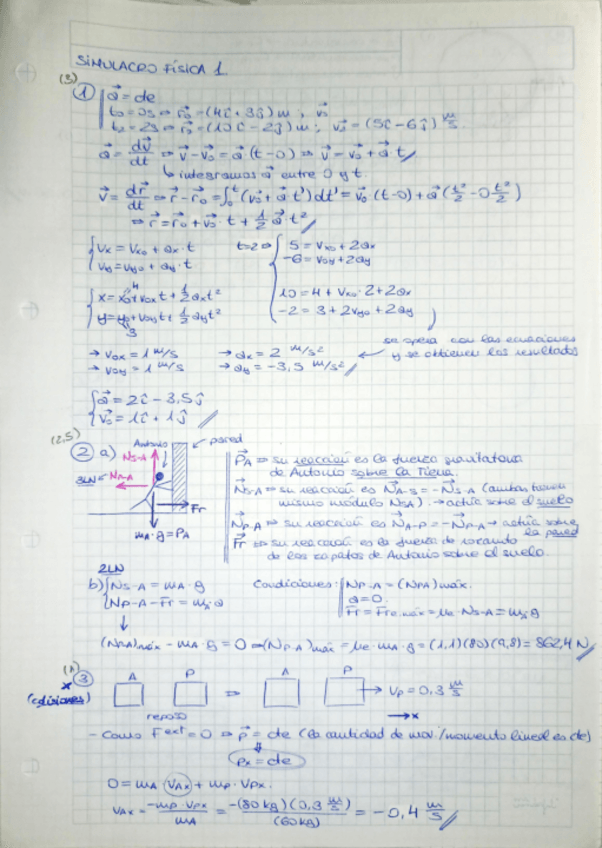 SIMULACRO FÍSICA 1.
(3)
① a⃗ = cte
t₀=0s ⇒ r₀⃗ = (4î + 3ĵ) m ; v₀⃗
t₂=2s ⇒ r₂⃗ = (10î - 2ĵ) m ; v₂⃗ = (5î - 6ĵ) m/s
a⃗ = dv⃗/dt ⇒ v⃗ - v₀⃗ = a⃗ (t-0) ⇒ v⃗ = v₀⃗ + a⃗ t
↳ integramos a⃗ entre 0 y t.
v⃗ = dr⃗/dt ⇒ r⃗ - r₀⃗ = ∫₀ᵗ (v₀⃗ + a⃗ t') dt' = v₀⃗ (t-0) + a⃗ (t²/2 - 0 t²/2)
⇒ r⃗ = r₀⃗ + v₀⃗ · t + 1/2 a⃗ t²
{ vx = vx₀ + ax · t t=2 ⇒ { 5 = vx₀ + 2ax
vy = vy₀ + ay · t -6 = v₀y + 2ay
{ x = x₀ + v₀x t + 1/2 ax t² 10 = 4 + vx₀ · 2 + 2ax
4
y = y₀ + v₀y t + 1/2 ay t² -2 = 3 + 2vy₀ + 2ay
3
se opera con las ecuaciones
y se obtienen los resultados
→ v₀x = 1 m/s → ax = 2 m/s²
→ v₀y = 1 m/s → ay = -3,5 m/s²
{ a⃗ = 2î - 3,5ĵ
v₀⃗ = 1î + 1ĵ
(2,5)
② a) Antonio pared
NS-A
3LN NP-A
Fr
mA · g = PA
P⃗A ⇒ su reacción es la fuerza gravitatoria
de Antonio sobre la Tierra.
N⃗S-A ⇒ su reacción es N⃗A-S = -N⃗S-A (ambas tienen
mismo módulo NSA) → actúa sobre el suelo
N⃗P-A ⇒ su reacción es N⃗A-P = -N⃗P-A → actúa sobre
la pared
F⃗r ⇒ su reacción es la fuerza de rozamto
de los zapatos de Antonio sobre el suelo.
2LN
b) { NS-A = mA · g Condiciones: NP-A = (NPA)máx.
NP-A - Fr = mA · a a = 0.
Fr = Fre,máx = μe · NS-A = μe g
(NPA)máx - mA · g = 0 ⇒ (NP-A)máx = μe · mA · g = (1,1)(80)(9,8) = 862,4 N
(1)
③ A P A P
(colisiones) ⇒ → vp = 0,3 m/s
reposo → x
- Como Fext = 0 ⇒ p⃗ = cte (la cantidad de mov./momento lineal es cte)
px = cte
0 = mA vAx + mp · vpx.
vAx = -mp · vpx/mA = -(80 kg)(0,3 m/s)/(60 kg) = -0,4 m/s